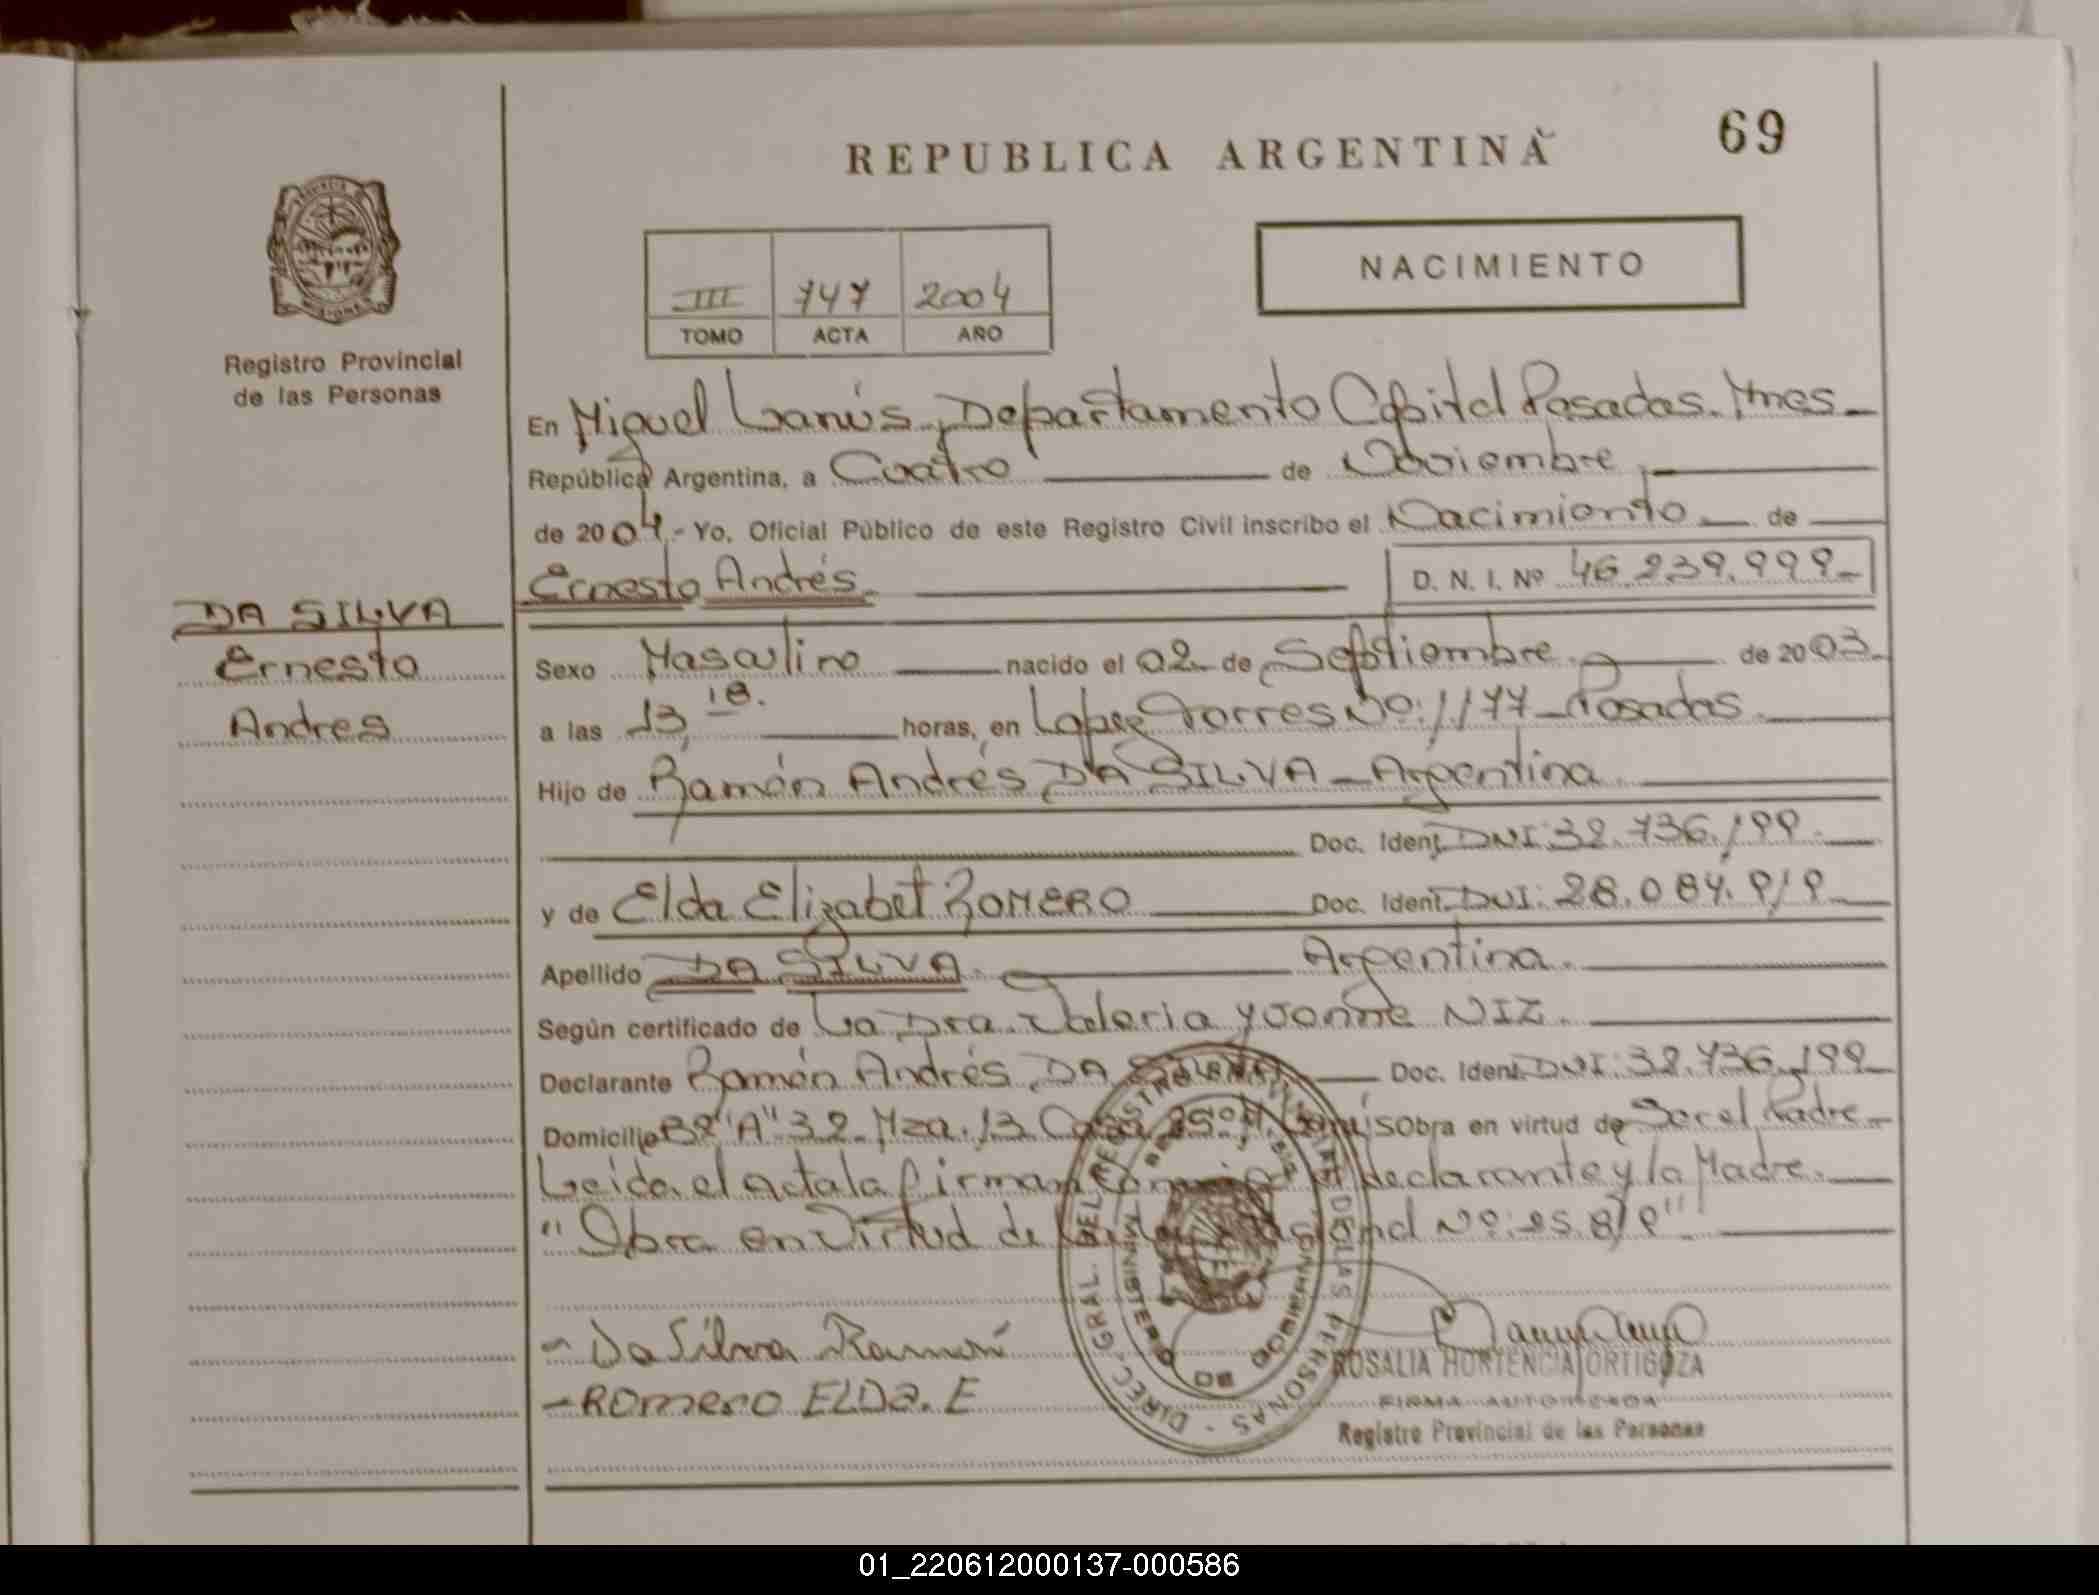 REPUBLICA ARGENTINA
69
NACIMIENTO
III 747 2004
TOMO ACTA AÑO
Registro Provincial
de las Personas
En Miguel Lanús, Departamento Capital Posadas. Mnes.
República Argentina, a Cuatro de Noviembre
de 2004.- Yo, Oficial Público de este Registro Civil inscribo el Nacimiento de
Ernesto Andrés. D. N. I. Nº 46.239.999
DA SILVA
Ernesto
Andres
Sexo Masculino nacido el 02 de Septiembre de 2003
a las 13,18. horas, en Lopez Torres Nº: 1177 Posadas
Hijo de Ramón Andrés DA SILVA - Argentina
Doc. Ident. DNI: 32.736.199.
y de Elda Elizabet ROMERO Doc. Ident. DNI: 28.084.919
Apellido DA SILVA. Argentina.
Según certificado de La Dra. Valeria Yvonne NIZ.
Declarante Ramón Andrés DA SILVA Doc. Ident. DNI: 32.736.199
Domicilio Bº "A" 32 Mza. 13 Casa Obra en virtud de Ser el Padre
Leida el acta la firman declarante y la Madre.
"Obra en Virtud de Nº: 25.819"
- Da Silva Ramón
- ROMERO ELDA. E
DIREC. GRAL. DEL REGISTRO DE LAS PERSONAS
ROSALIA HORTENCIA ORTIGOZA
FIRMA AUTORIZADA
Registro Provincial de las Personas
01_220612000137-000586